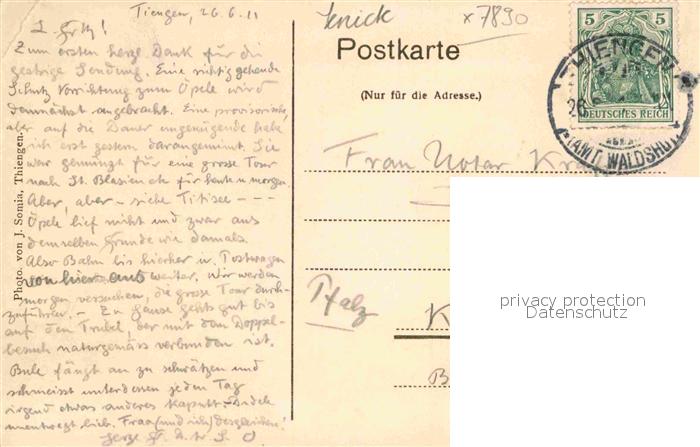 Tiengen, 26.6.11
Zum ersten herzl. Dank für die
gestrige Sendung. Eine richtig gehende
Schutz Vorrichtung zum Opele wird
demnächst angebracht. Eine provisorische,
aber auf die Dauer ungenügende habe
ich erst gestern darangemint. Sie
war genügt für eine grosse Tour
nach St. Blasien etc für heute u. morgen.
Aber, aber - siehe Titisee - - -
Opele lief nicht und zwar aus
demselben Grunde wie damals.
Also Bahn bis hierher u. Postwagen
von hier aus weiter. Wir werden
morgen versuchen, die grosse Tour durch-
zuführen. - Zu Hause gehts gut bis
auf den Trubel, der mit dem Doppel-
besuch naturgemäss verbunden ist.
Bule fängt an zu schwätzen und
schmeisst unterdessen jeden Tag
irgend etwas anderes kaputt.
unentwegt lieb. Frau (und ich) desgleichen.
Photo. von J. Somia, Thiengen.
x 7890
Postkarte
(Nur für die Adresse.)
Frau Notar
Pfalz
K
B
5 5
DEUTSCHES REICH
THIENGEN
(AMT WALDSHUT)
privacy protection
Datenschutz